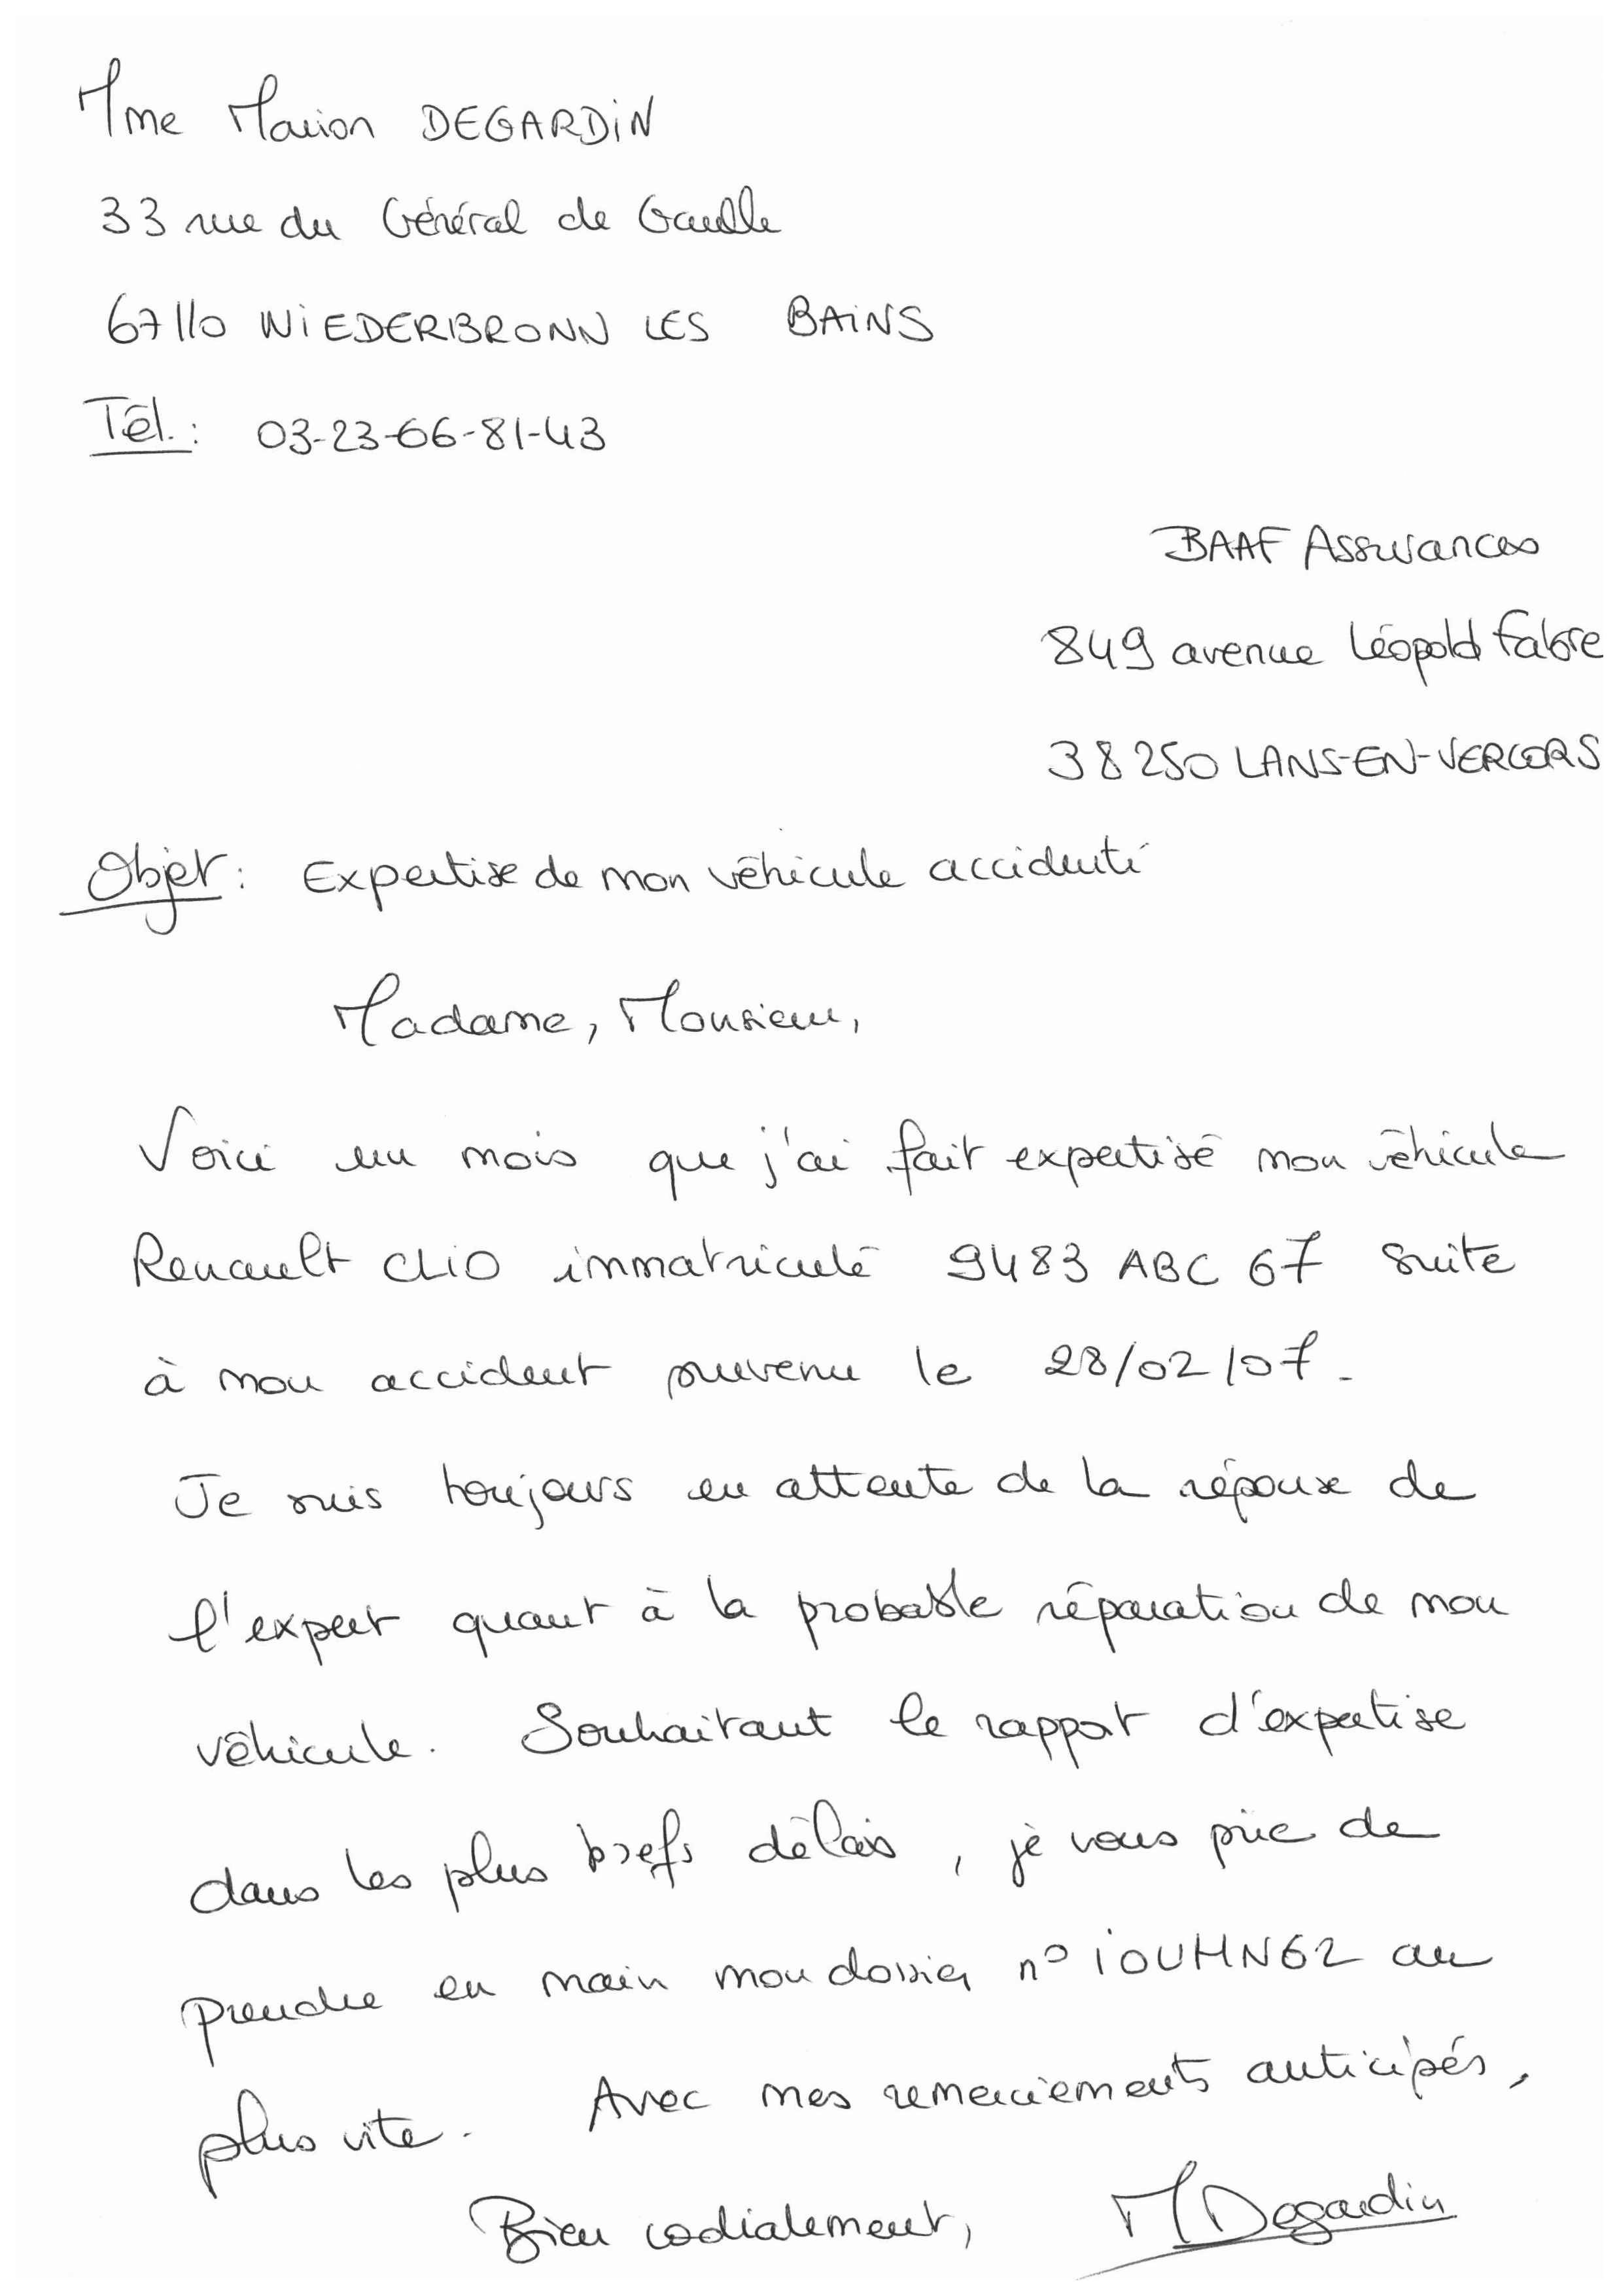 Mme Marion DEGARDIN
33 rue du Général de Gaulle
67110 NIEDERBRONN LES BAINS
Tél.: 03-23-66-81-43
BAAF Assurances
849 avenue Léopold Fabre
38250 LANS-EN-VERCORS
Objet: Expertise de mon véhicule accidenté
Madame, Monsieur,
Voici un mois que j'ai fait expertisé mon véhicule
Renault CLIO immatriculé 9483 ABC 67 suite
à mon accident survenu le 28/02/07.
Je suis toujours en attente de la réponse de
l'expert quant à la probable réparation de mon
véhicule. Souhaitant le rapport d'expertise
dans les plus brefs délais, je vous prie de
prendre en main mon dossier n° IOUHN62 au
plus vite. Avec mes remerciements anticipés,
Bien cordialement, M Degardin